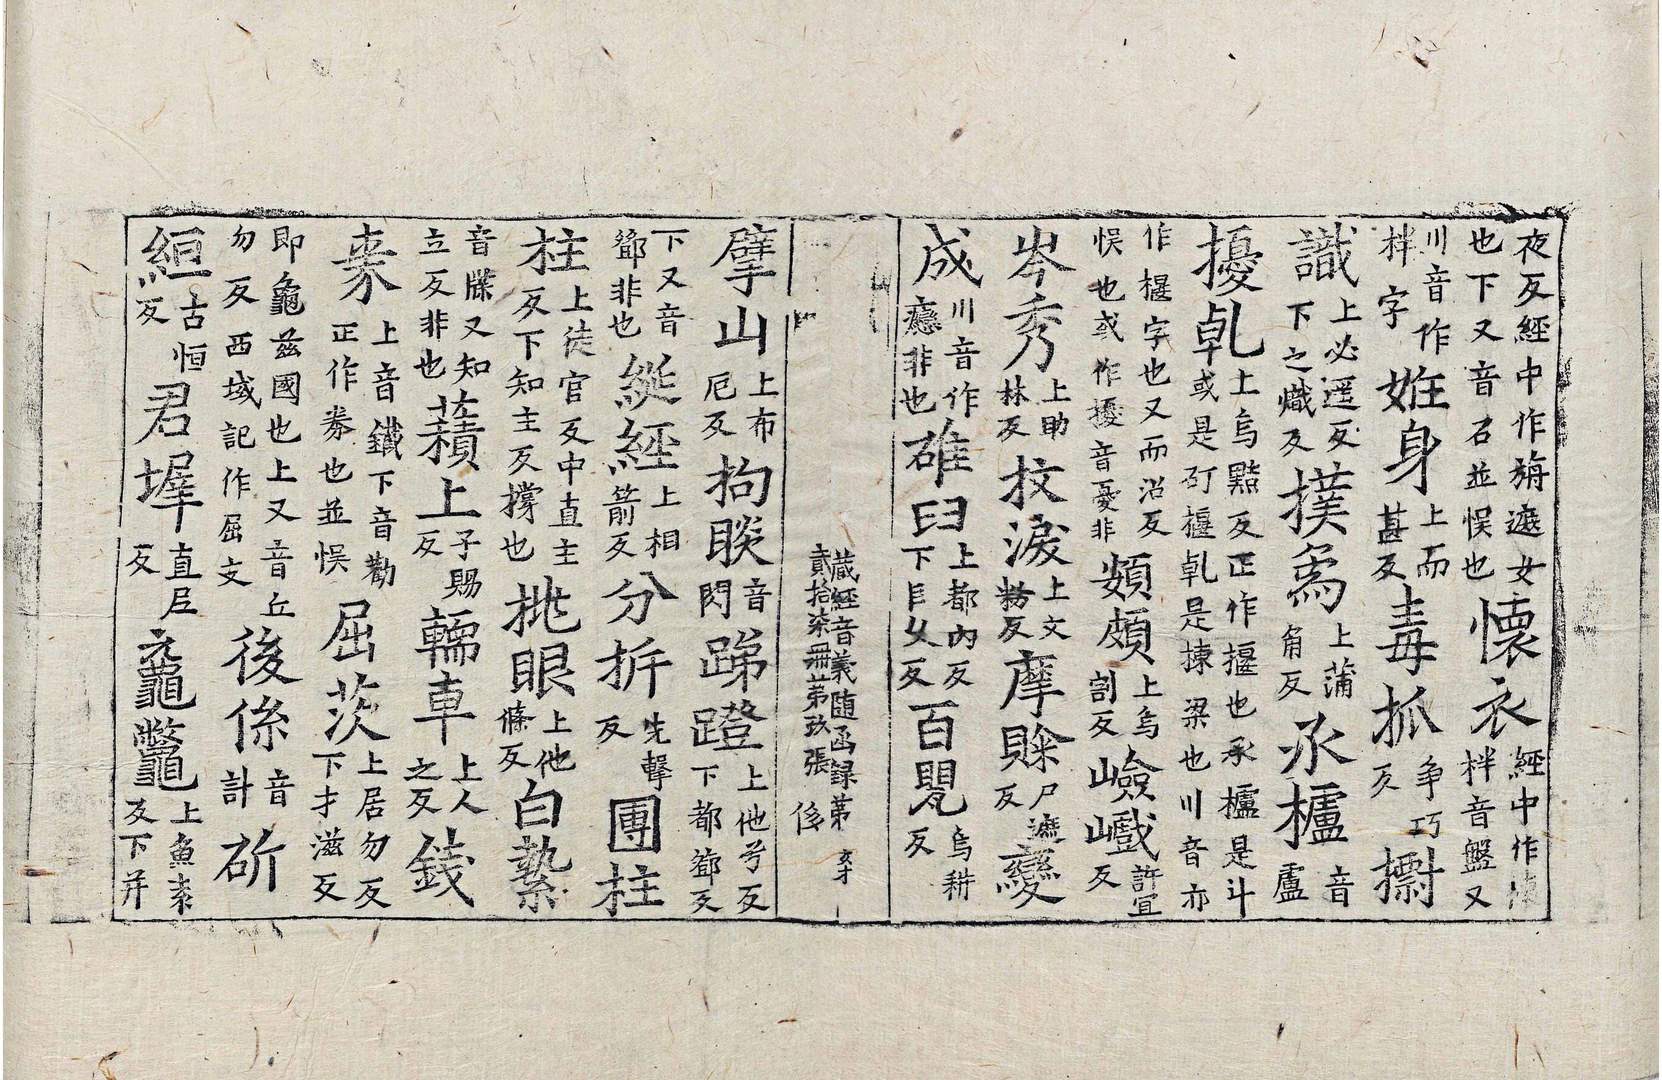 夜反經中作旃遮女懷衣經中作
也下又音召並悮也柈音盤又
川音作柈字姙身上而甚反毒抓爭巧反㩌
識上必遥反下之熾反撲㷱上蒲角反承櫨音盧
擾乹上烏黠反正作揠也承櫨是斗或是矴揠乹是揀梁也川音亦
作椻字也又而沼反悮也或作擾音憂非頞頗上烏割反嶮巇許宜反
岑秀上助林反抆淚上文粉反摩賖尸遮反變
成川音作瘾非也碓臼上都內反下臼久反百甖烏耕反
藏經音義隨函録第貳拾柒冊第玖張 俊
擘山上布厄反拘睒音閃踶蹬上他兮反下都鄧反
下又音鄧非也綖經上相箭反分折先擊反團柱
柱上徒官反中直主反下知主反撑也挑眼上他條反白㲲
音牒又知立反非也𧂐上子賜反輭車上人之反錢
桊上音鐵下音勸正作券也並悮屈茨上居勿反下才滋反
即龜茲國也上又音丘勿反西域記作屈文後係音計斫
絙古恒反君墀直尼反黿鼈上魚袁反下并